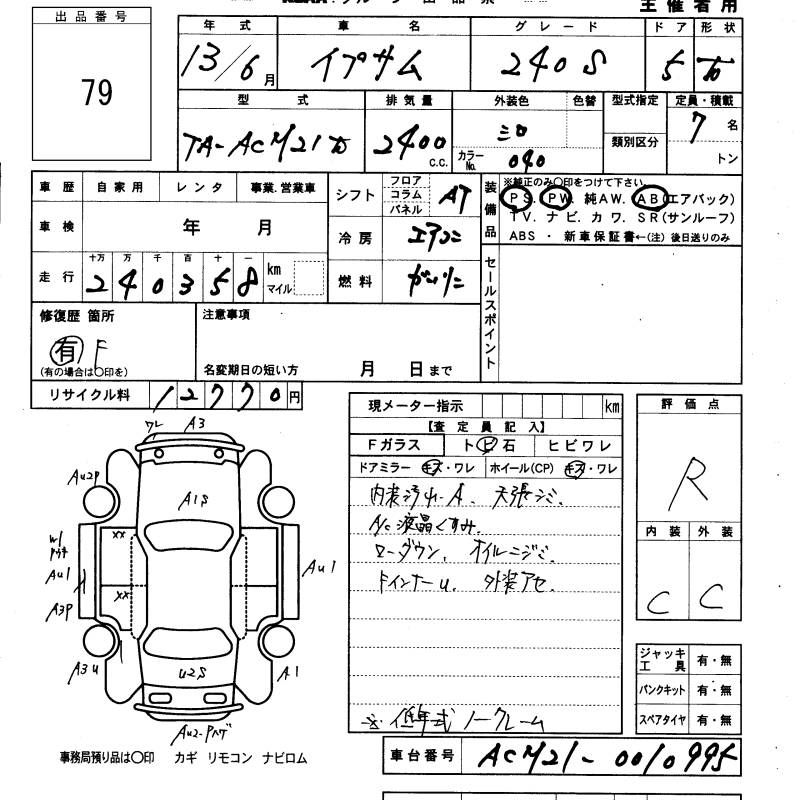 主催者用
出品番号
79
年式 車名 グレード ドア 形状
13/6月 イプサム 240S 5 W
型式 排気量 外装色 色替 型式指定 定員・積載
TA-ACM21W 2400 c.c. シロ 類別区分 7名
カラーNo. 040 トン
車歴 自家用 レンタ 事業.営業車
車検 年 月
走行 十万 万 千 百 十 一
240358 km マイル
シフト フロア コラム パネル AT
冷房 エアコン
燃料 ガソリン
装備品 ※純正のみ○印をつけて下さい
PS. PW. 純AW. AB(エアバック)
TV. ナビ. カワ. SR(サンルーフ)
ABS ・ 新車保証書←(注) 後日送りのみ
セールスポイント
修復歴 箇所
有 F
(有の場合は○印を)
注意事項
名変期日の短い方 月 日まで
リサイクル料 12770円
現メーター指示 km
【査定員記入】
Fガラス ト ビ 石 ヒビワレ
ドアミラー キズ・ワレ ホイール(CP) キズ・ワレ
内装汚れ・A. 天張シミ.
A/C液晶くすみ.
ローダウン. オイルニジミ.
ドインナーU. 外装アセ.
※低年式ノークレーム
評価点
R
内装 外装
C C
ジャッキ工具 有・無
パンクキット 有・無
スペアタイヤ 有・無
ワレ A3
Au2P
A1S
XX
Au1
A3P
XX
Au1
A3U
U2S
A1
Au2-Pハゲ
事務局預り品は○印 カギ リモコン ナビロム
車台番号 ACM21-0010995